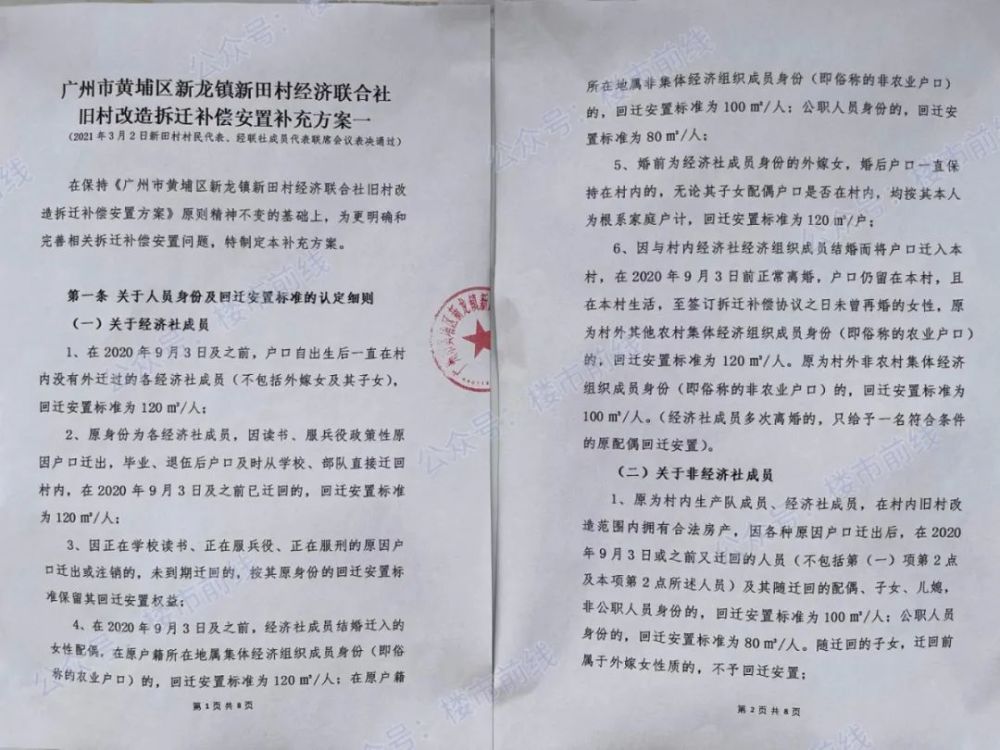 广州市黄埔区新龙镇新田村经济联合社
旧村改造拆迁补偿安置补充方案一
（2021年3月2日新田村村民代表、经联社成员代表联席会议表决通过）
在保持《广州市黄埔区新龙镇新田村经济联合社旧村改
造拆迁补偿安置方案》原则精神不变的基础上，为更明确和
完善相关拆迁补偿安置问题，特制定本补充方案。
第一条 关于人员身份及回迁安置标准的认定细则
（一）关于经济社成员
1、在2020年9月3日及之前，户口自出生后一直在村
内没有外迁过的各经济社成员（不包括外嫁女及其子女），
回迁安置标准为120㎡/人；
2、原身份为各经济社成员，因读书、服兵役政策性原
因户口迁出，毕业、退伍后户口及时从学校、部队直接迁回
村内，在2020年9月3日及之前已迁回的，回迁安置标准
为120㎡/人；
3、因正在学校读书、正在服兵役、正在服刑的原因户
口迁出或注销的，未到期迁回的，按其原身份的回迁安置标
准保留其回迁安置权益；
4、在2020年9月3日及之前，经济社成员结婚迁入的
女性配偶，在原户籍所在地属集体经济组织成员身份（即俗
称的农业户口）的，回迁安置标准为120㎡/人；在原户籍
第1页共8页
所在地属非集体经济组织成员身份（即俗称的非农业户口）
的，回迁安置标准为100㎡/人；公职人员身份的，回迁安
置标准为80㎡/人；
5、婚前为经济社成员身份的外嫁女，婚后户口一直保
持在村内的，无论其子女配偶户口是否在村内，均按其本人
为根系家庭户计，回迁安置标准为120㎡/户；
6、因与村内经济社经济组织成员结婚而将户口迁入本
村，在2020年9月3日前正常离婚，户口仍留在本村，且
在本村生活，至签订拆迁补偿协议之日未曾再婚的女性，原
为村外其他农村集体经济组织成员身份（即俗称的农业户口）
的，回迁安置标准为120㎡/人。原为村外非农村集体经济
组织成员身份（即俗称的非农业户口）的，回迁安置标准为
100㎡/人。（经济社成员多次离婚的，只给予一名符合条件
的原配偶回迁安置）。
（二）关于非经济社成员
1、原为村内生产队成员、经济社成员，在村内旧村改
造范围内拥有合法房产，因各种原因户口迁出后，在2020
年9月3日或之前又迁回的人员（不包括第（一）项第2点
及本项第2点所述人员）及其随迁回的配偶、子女、儿媳，
非公职人员身份的，回迁安置标准为100㎡/人；公职人员
身份的，回迁安置标准为80㎡/人。随迁回的子女，迁回前
属于外嫁女性质的，不予回迁安置；
第2页共8页
公众号：楼市前线